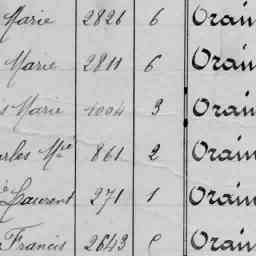 Marie 2826 6 Orain
Marie 2811 6 Orain
Marie 1004 3 Orain
rles Mie 861 2 Orain
Laurent 271 1 Orain
Francis 2643 6 Orain